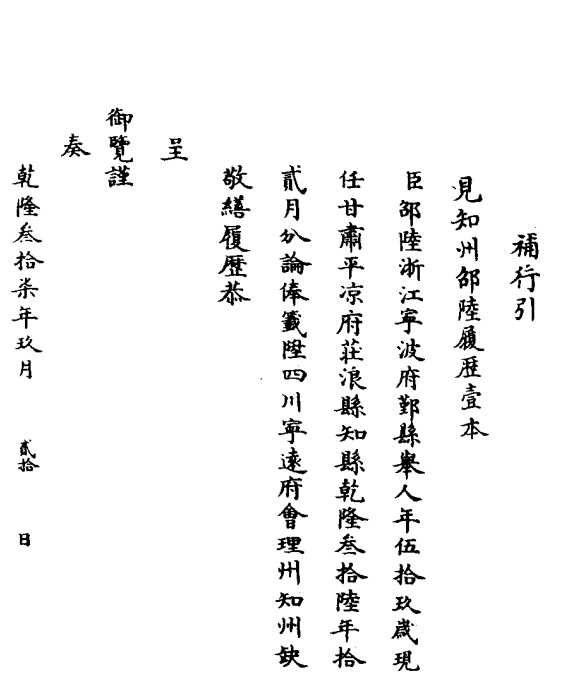 補行引
見知州邵陸履歷壹本
臣邵陸浙江寧波府鄞縣舉人年伍拾玖歲現
任甘肅平凉府莊浪縣知縣乾隆叁拾陸年拾
貳月分論俸籤陞四川寧遠府會理州知州缺
敬繕履歷恭
呈
御覽謹
奏
乾隆叁拾柒年玖月 貳拾 日